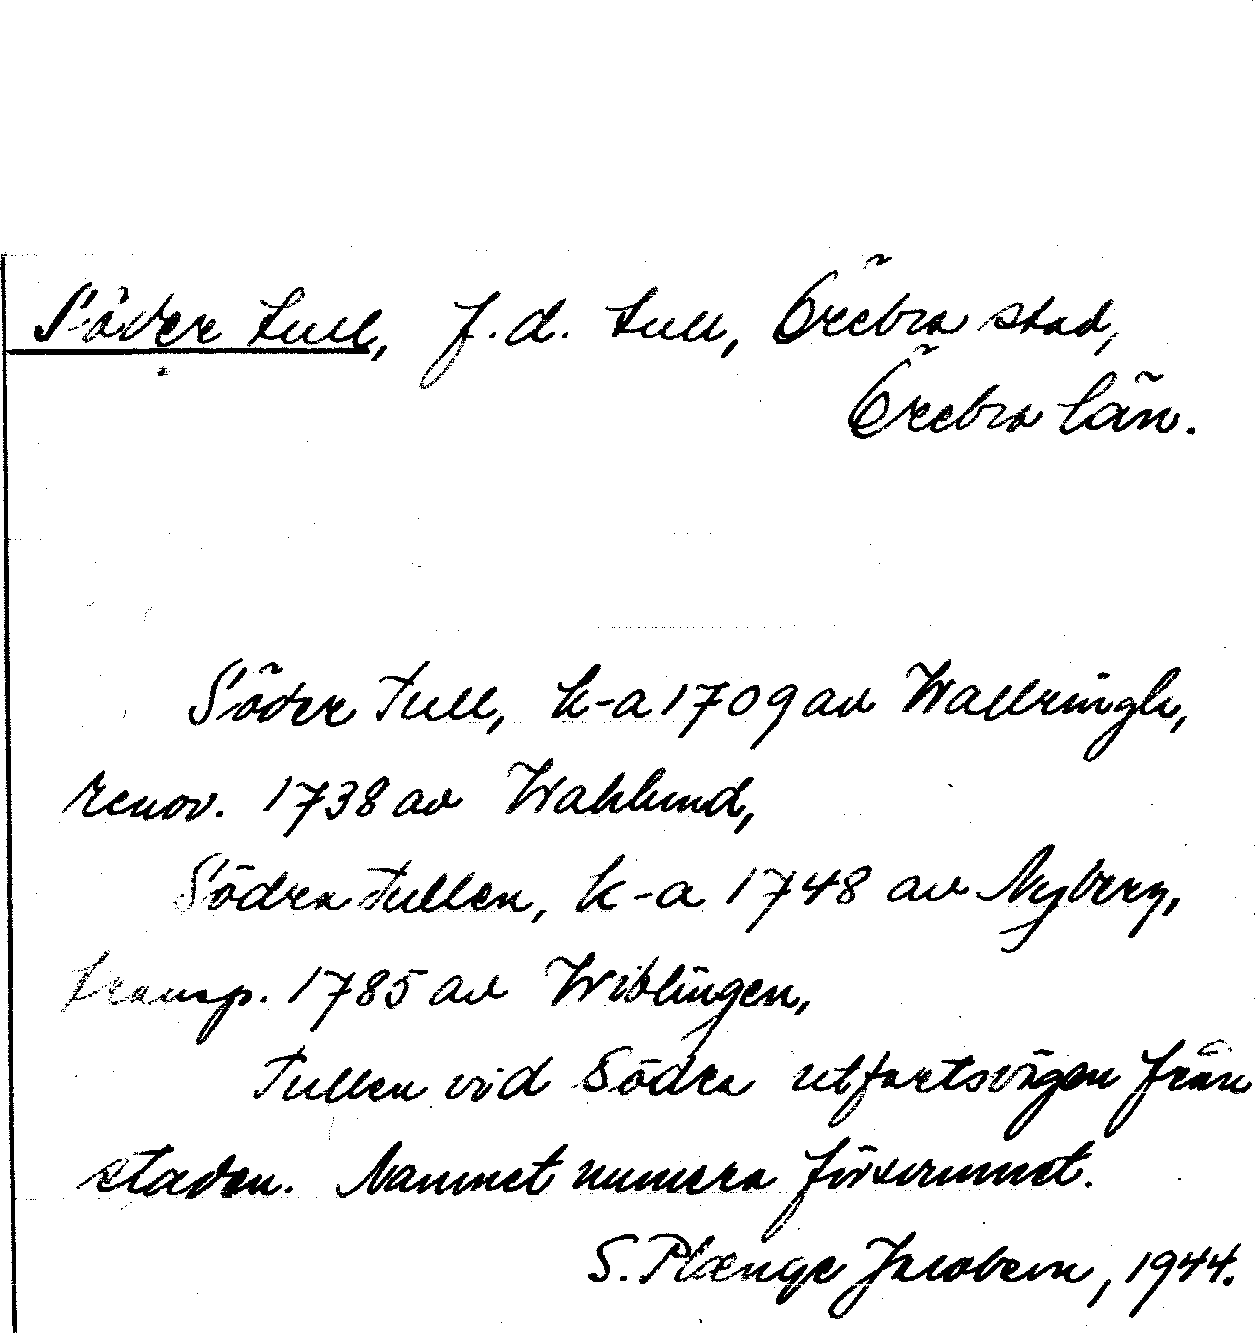 Söder tull, f.d. tull, Örebro stad,
Örebro län.
Söder Tull, k-a 1709 av Wallringh,
renov. 1738 av Wahlund,
Södra tullen, k-a 1748 av Nyberg,
transp. 1785 av Wiblingen,
Tullen vid Södra utfartsvägen från
staden. Namnet numera försvunnet.
S. Plænge Jacobson, 1944.